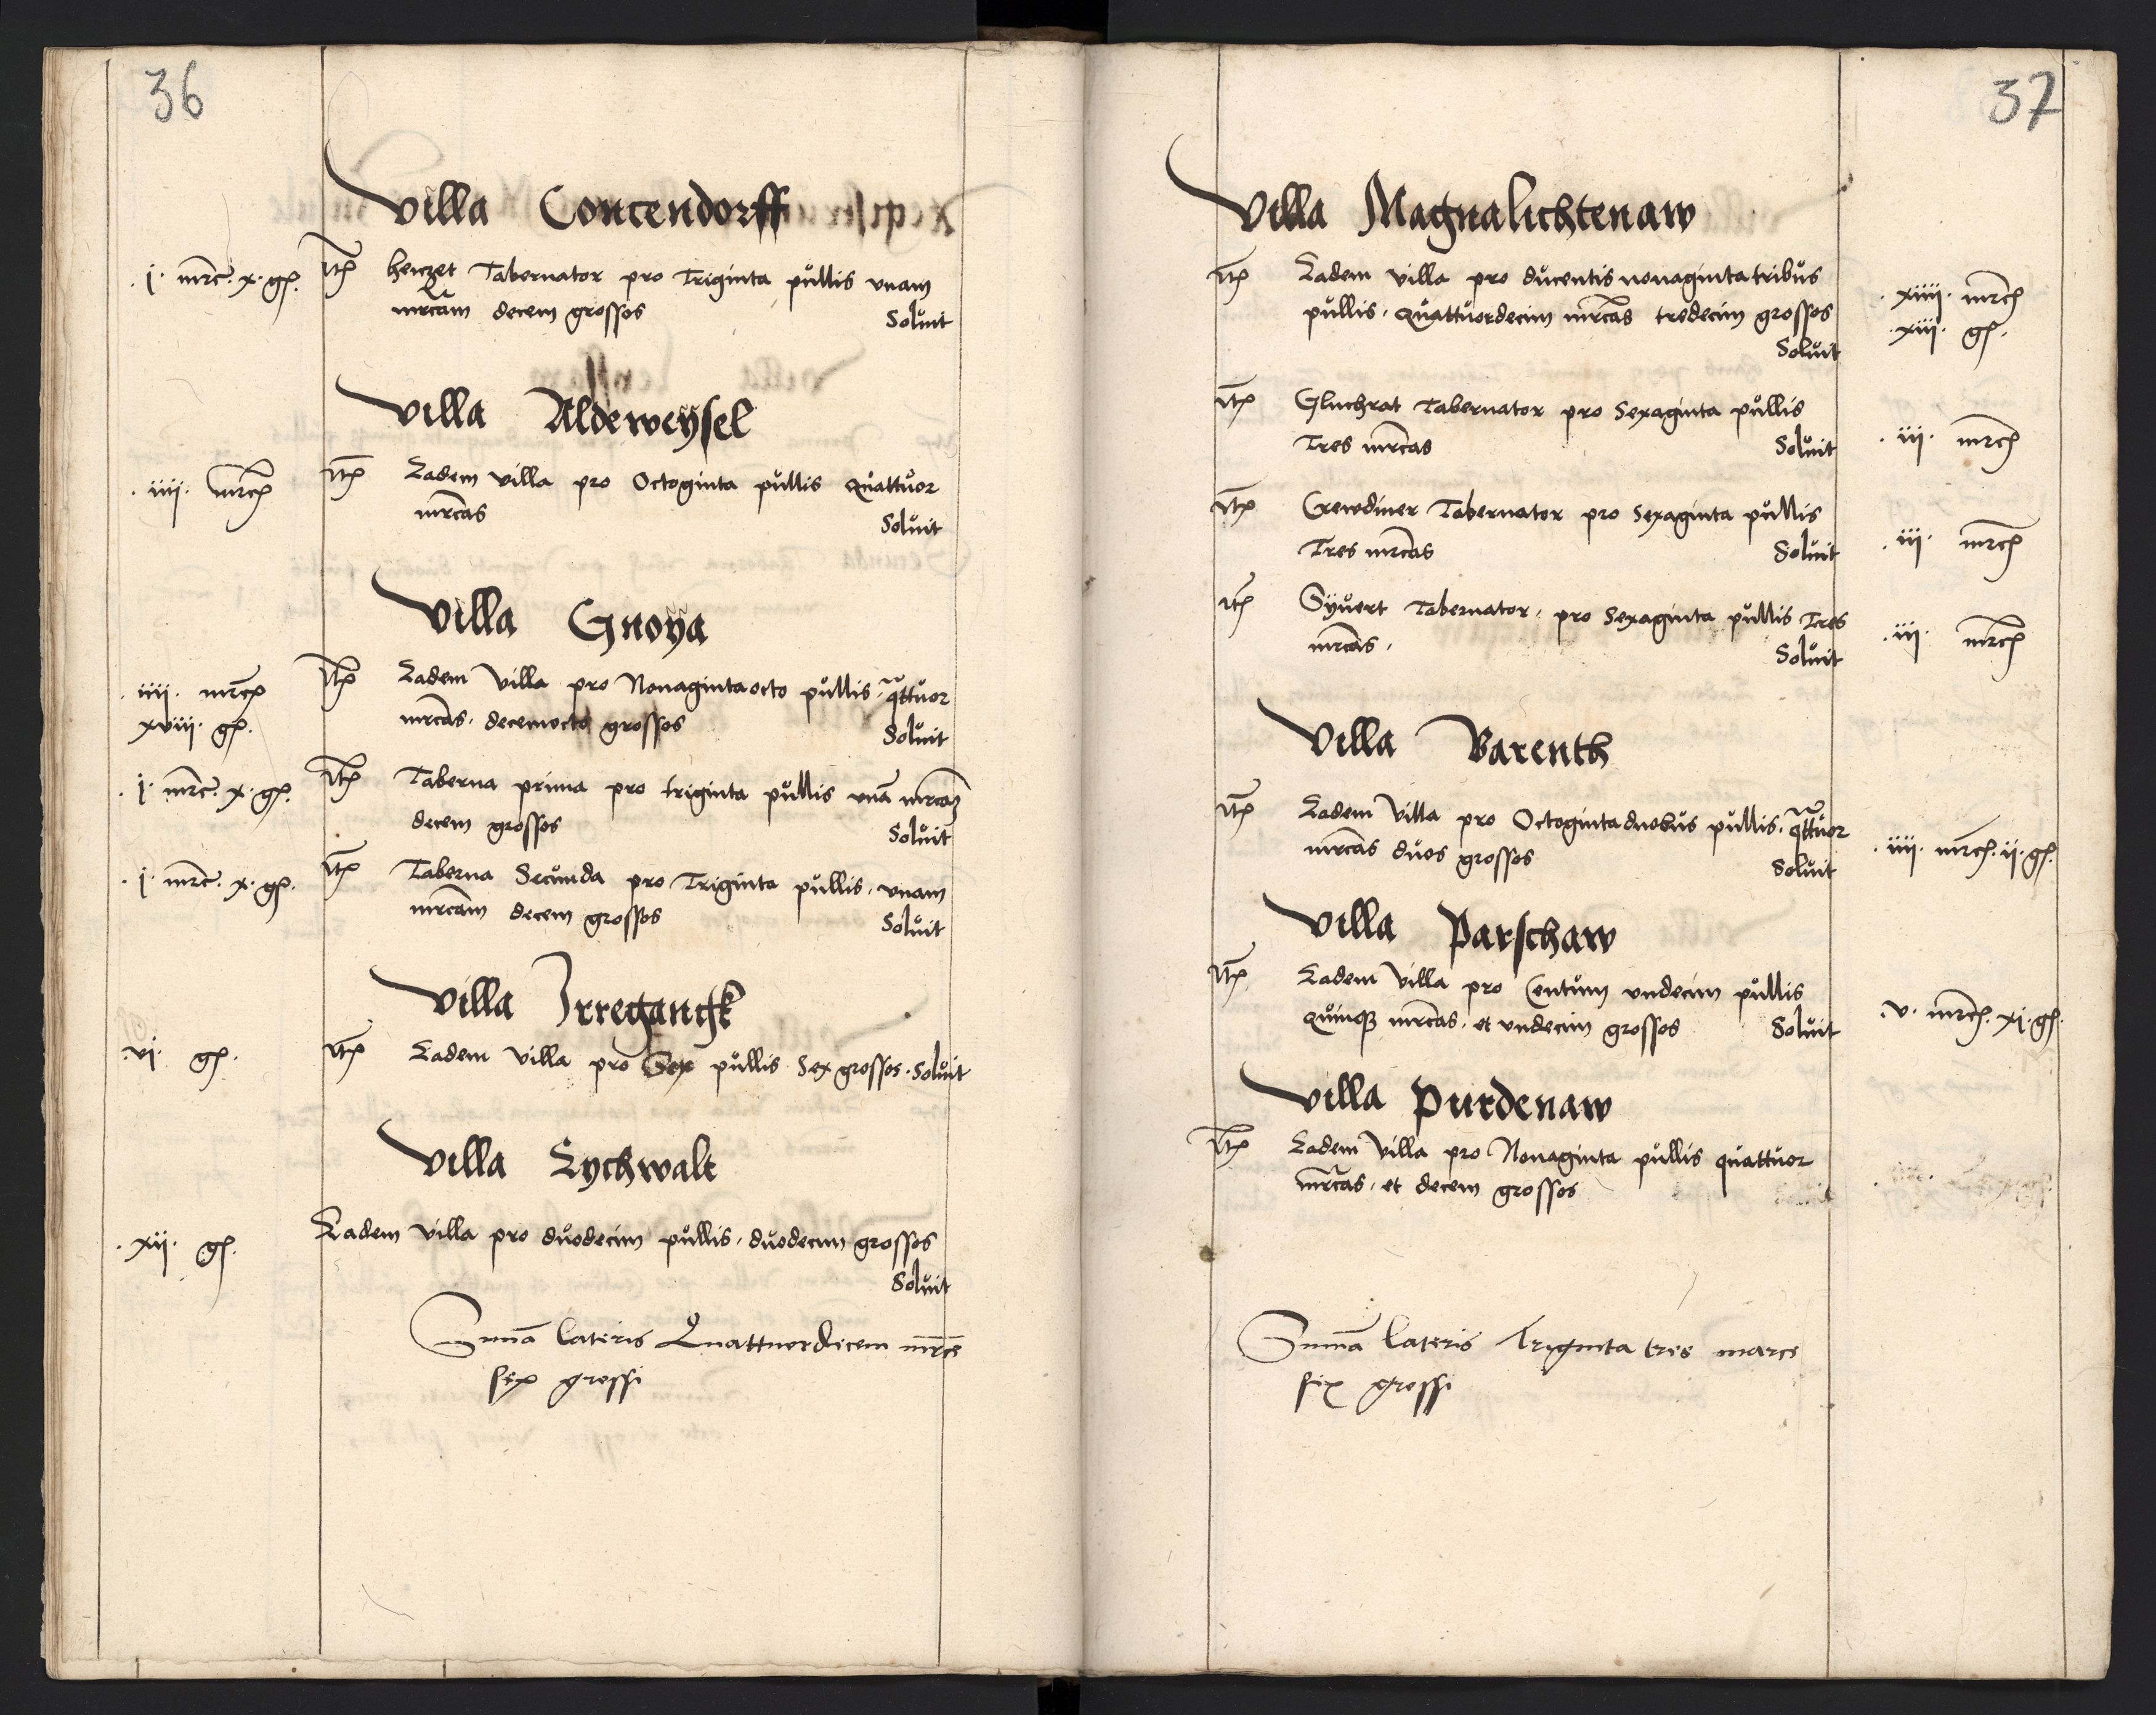 36
Villa Concendorff
.j. mrc. x. gr. Itm henczet Tabernator pro Triginta pullis vnam
mrcam decem grossos Soluit
Villa Aldeweysel
.iiii. mrc Itm Eadem villa pro Octoginta pullis Quattuor
mrcas
Soluit
Villa Gnoya
.iiii. mrc Itm Eadem Villa pro Nonagintaocto pullis. qttuor
xviii. gr. mrcas. decemocto grossos Soluit
.j. mrc. x. gr. Itm Taberna prima pro triginta pullis vna mrcam
decem grossos Soluit
.j. mrc. x. gr. Itm Taberna Secunda pro Triginta pullis. vnam
mrcam decem grossos Soluit
Villa Irregangk
.vi. gr. Itm Eadem Villa pro Sex pullis Sex grossos. Soluit
Villa Eychwalt
.xii. gr. Eadem villa pro duodecim pullis. duodecim grossos
Soluit
Suma lateris Quattuordecem mrce
sex grossi
37
Villa Magnalichtenaw
Itm Eadem villa pro ducentis nonagintatribus .xiiii. mrc
pullis. Quattuordecim mrcas tredecim grossos .xiii. gr.
Soluit
Itm Gluchrat Tabernator pro Sexaginta pullis
Tres mrcas Soluit .iii. mrc
Itm Crewdiner Tabernator pro Sexaginta pullis
Tres mrcas Soluit .iii. mrc
Itm Syuert Tabernator. pro Sexaginta pullis Tres
mrcas. Soluit .iii. mrc
Villa Barenth
Itm Eadem Villa pro Octogintaduobus pullis. qttuor
mrcas duos grossos Soluit .iiii. mrc. ii. gr.
Villa Parschaw
Itm Eadem Villa pro Centum vndecim pullis
Quinqz mrcas. et vndecim grossos Soluit .v. mrc. xi. gr.
Villa Purdenaw
Itm Eadem Villa pro Nonaginta pullis quattuor
mrcas. et decem grossos
Suma lateris Triginta tres marce
sex grossi